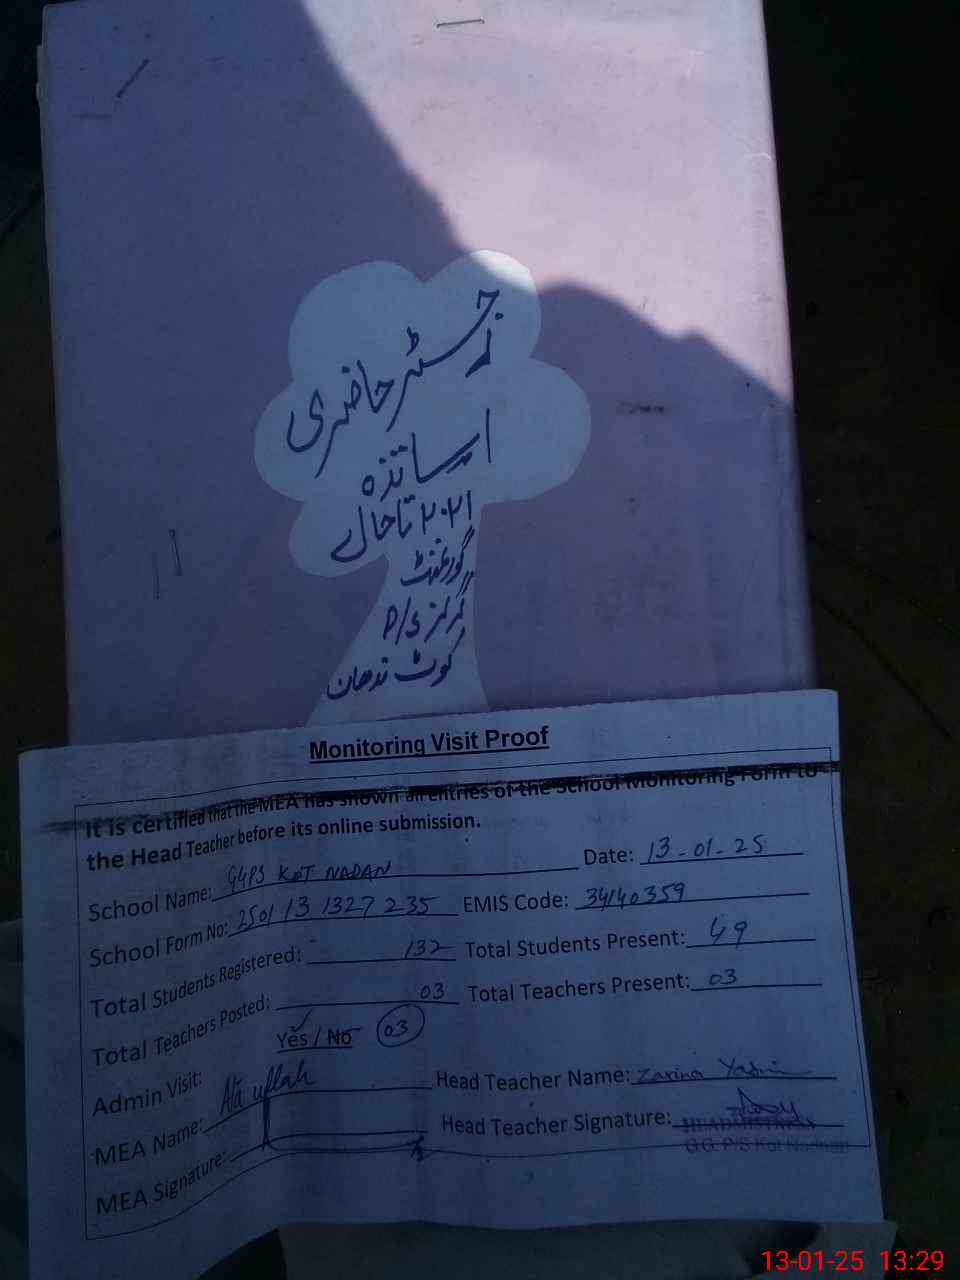 رجسٹر حاضری
اساتذہ
۲۰۲۱ تا حال
گورنمنٹ
گرلز P/S
کوٹ ندھان
Monitoring Visit Proof
It is certified that the MEA has shown all entries of the School Monitoring Form to
the Head Teacher before its online submission.
School Name: GGPS KOT NADAN Date: 13-01-25
School Form No: 2501131327235 EMIS Code: 34140359
Total Students Registered: 132 Total Students Present: 49
Total Teachers Posted: 03 Total Teachers Present: 03
Admin Visit: Yes / No 03
MEA Name: Ata ullah Head Teacher Name: Zarina
MEA Signature: Head Teacher Signature:
HEADMISTRESS
G.G. P/S Kot
13-01-25 13:29